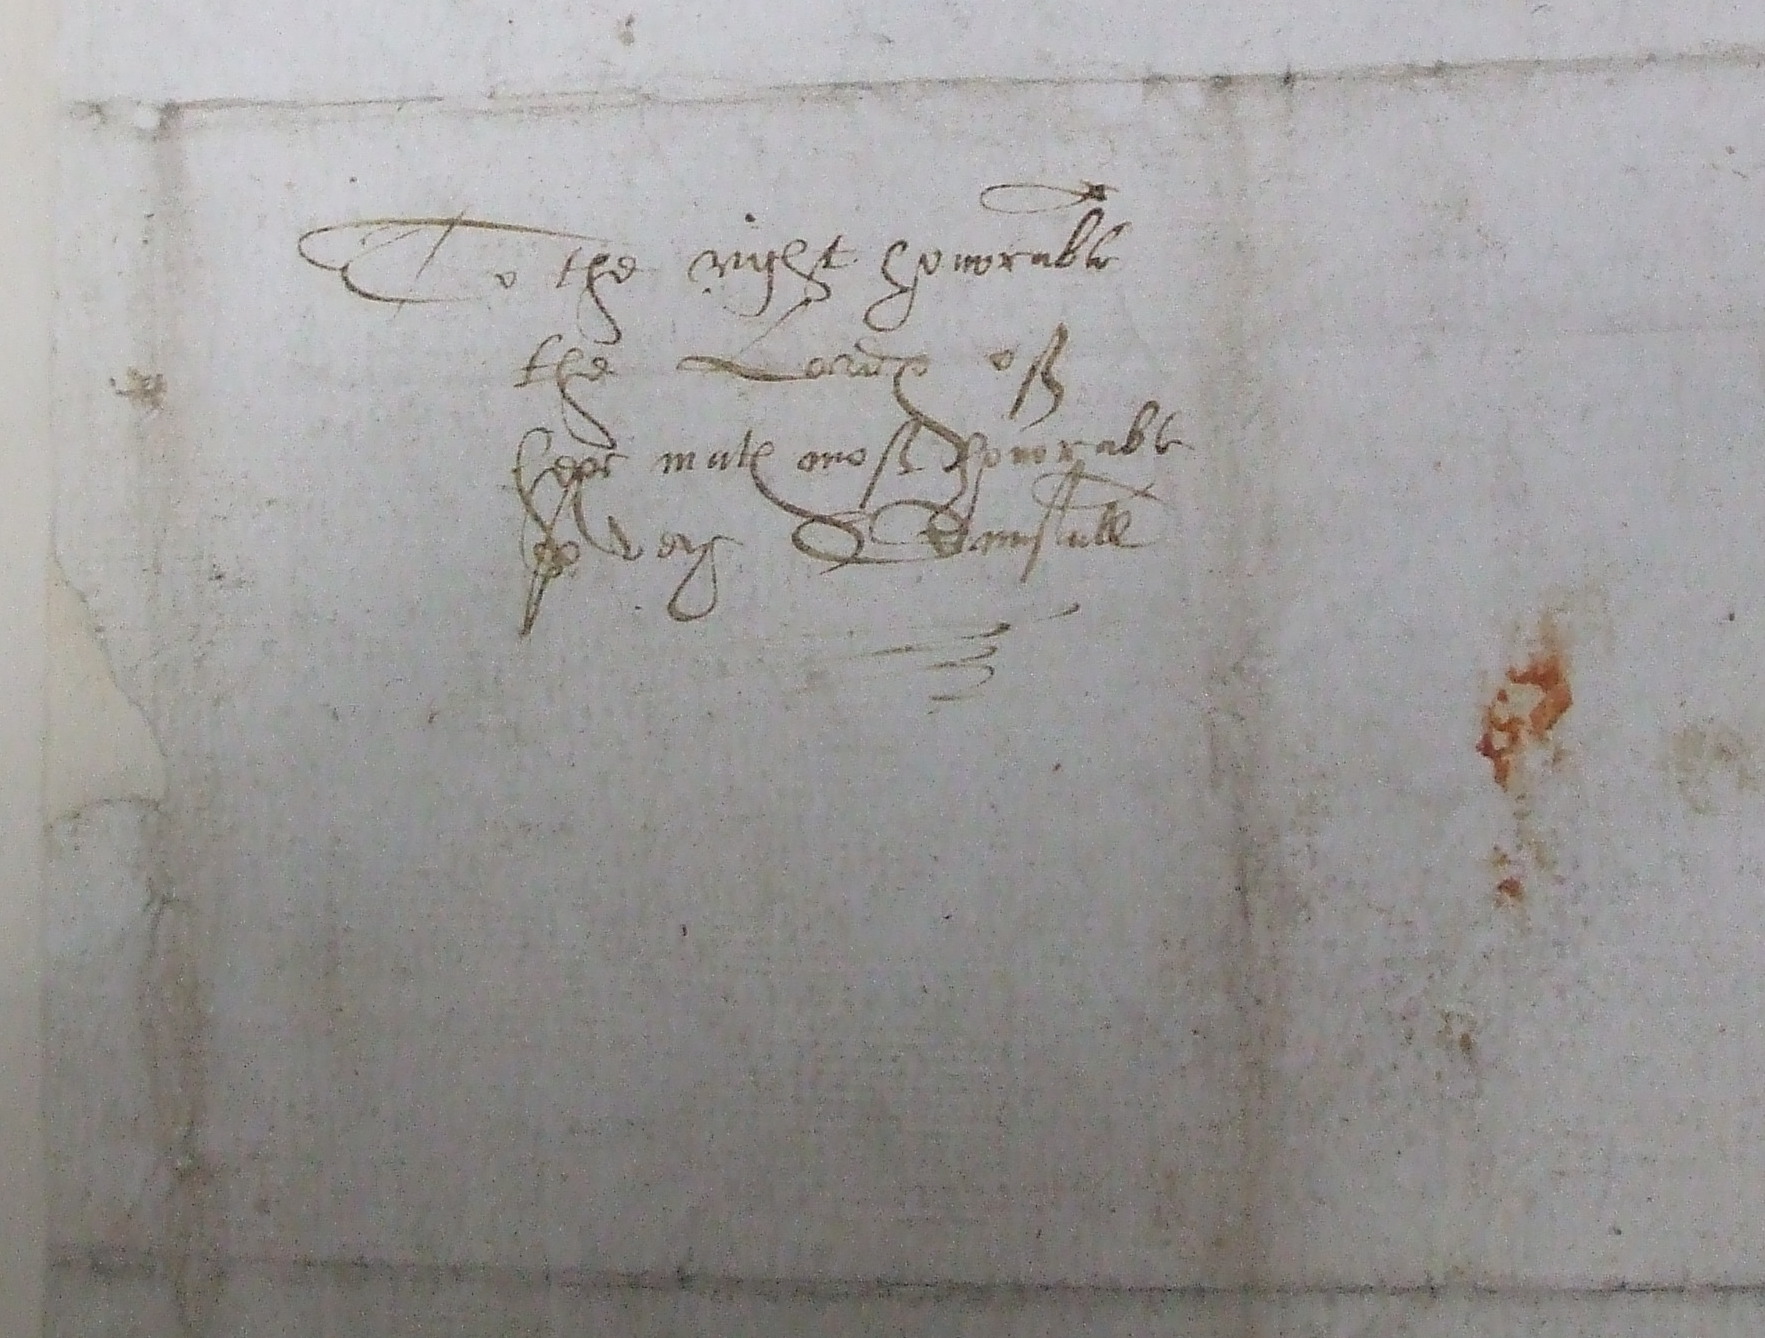 To the right honorable
the Lordes of
her maties most honorable
pryvey Counsaill